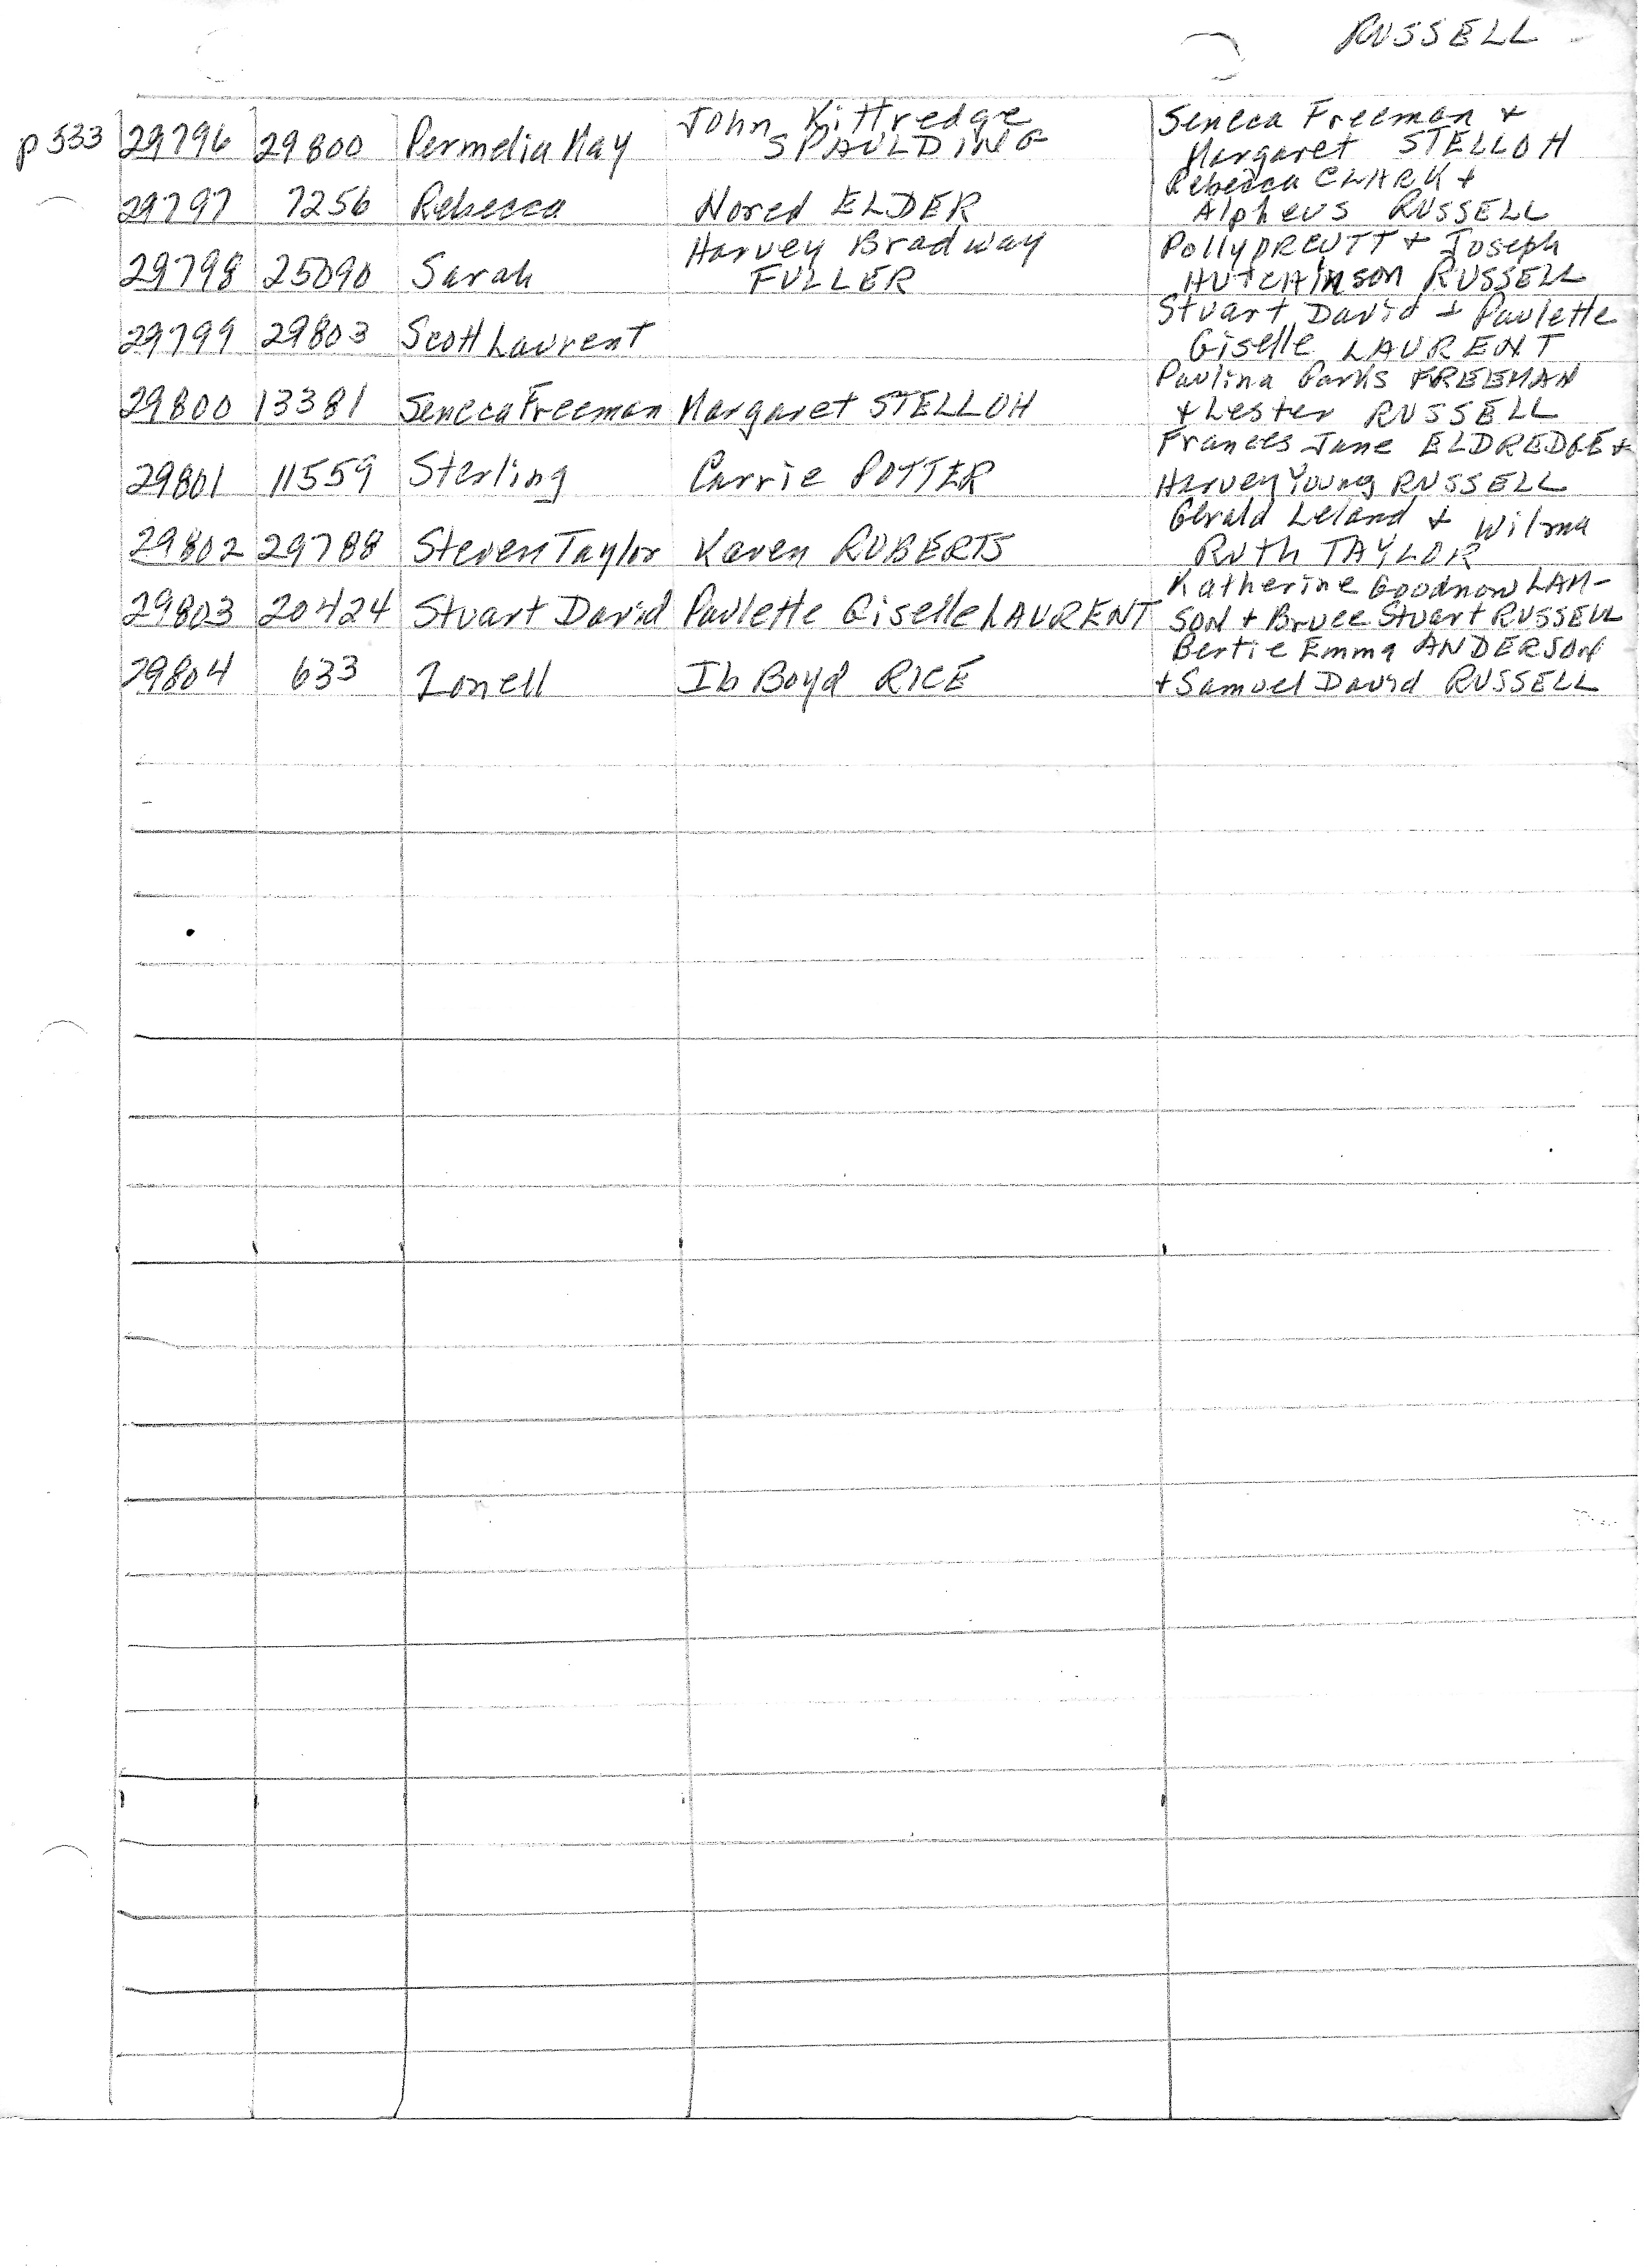 RUSSELL
p 533 29796 29800 Permelia May John Kittredge SPAULDING Seneca Freeman + Margaret STELLOH
29797 7256 Rebecca Nored ELDER Rebecca CLARK + Alpheus RUSSELL
29798 25090 Sarah Harvey Bradway FULLER Polly PREUTT + Joseph HUTCHINSON RUSSELL
29799 29803 Scott Laurent Stuart David + Paulette Giselle LAURENT
29800 13381 Seneca Freeman Margaret STELLOH Paulina Parks FREEMAN + Lester RUSSELL
29801 11559 Sterling Carrie POTTER Frances Jane ELDREDGE + Harvey Young RUSSELL
29802 29788 Steven Taylor Karen ROBERTS Gerald Leland + Wilma Ruth TAYLOR
29803 20424 Stuart David Paulette Giselle LAURENT Katherine Goodnow LAM-SON + Bruce Stuart RUSSELL
29804 633 Zonell Ib Boyd RICE Bertie Emma ANDERSON + Samuel David RUSSELL